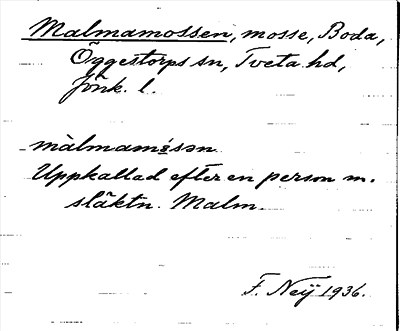 Malmamossen, mosse, Boda,
Öggestorps sn, Tveta hd,
Jönk. l.
màlmamòsən
Uppkallad efter en person m.
släktn. Malm.
F. Neij 1936.